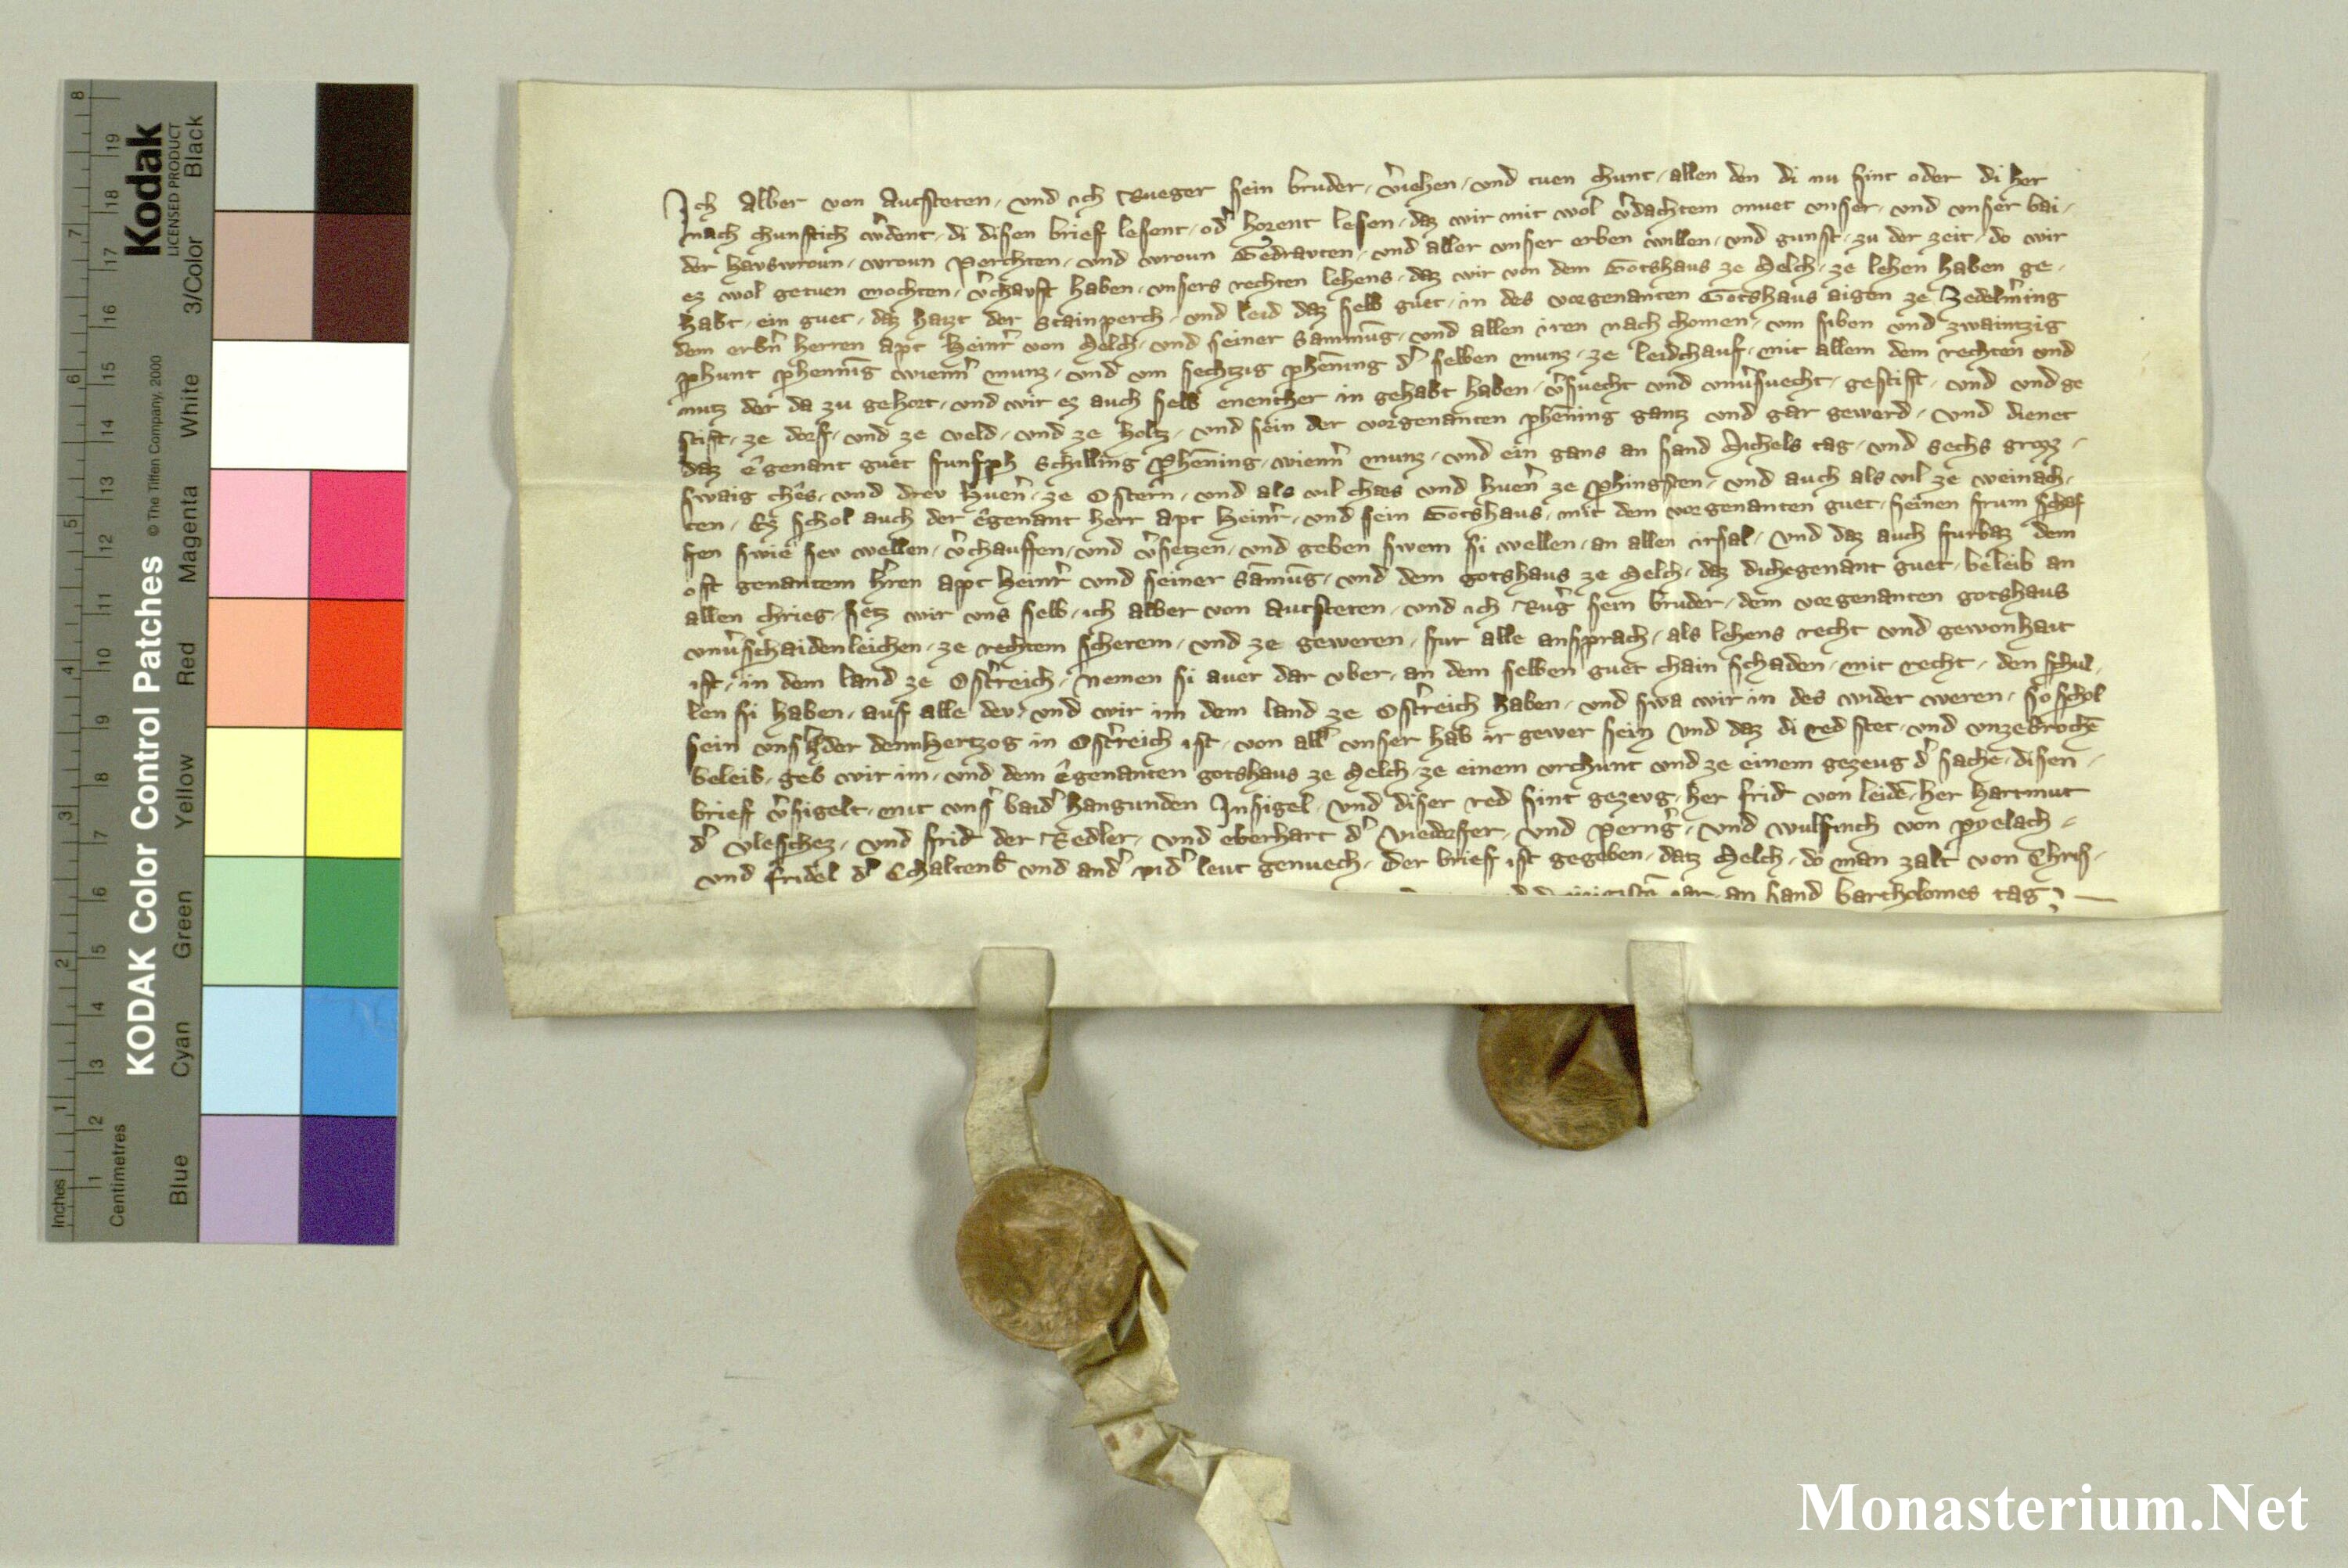 Ich Alber von Autsteten, vnd ich Rueger sein bruder, v̾iehen, vnd tuen chunt, allen den di nu sint oder di her
nach chunftich w̾dent, di disen brief lesent, od̾ horent lesen, daz wir mit wol v̾dachtem muet vnser, vnd vnser bai,
der hauswroun, vroun Perchten, vnd vroun Gedrauten, vnd aller vnser erben willen, vnd gunst, zu der zeit, do wir
ez wol getuen mochten, v̾chauft haben, vnsers rechten lehens, daz wir von dem Gotshaus ze Melch, ze lehen haben ge,
habt, ein guet, daz haizt der Stainperch, vnd leid daz selb guet, in des vorgenanten Gotshaus aigen ze Zedelm̾ing
dem erb̾n herren apt Heinr̾ von Melch, vnd seiner Sammu̅g, vnd allen iren nach chomen, vm siben vnd zwaintzig
phunt phenni̅g wienn̾ munz, vnd vm sechtzig phe̅ning d̾ selben munz, ze leidchauf, mit allem dem rechten vnd
nutz der da zu gehort, vnd wir ez auch selb enenther in gehabt haben, v̾suecht vnd vnu̾suecht, gestift, vnd vnge
stift, ze dorf, vnd ze veld, vnd ze holtz, vnd sein der vorgenanten phe̅ning gantz vnd gar gewerd, vnd dienet
daz êgenant guet funfph schilling Phe̅ning, wienn̾ munz, vnd ein gans an sand Michels tag, vnd sechs grozz,
swaig chês, vnd drev huen̾, ze Ostern, vnd als vil chaes vnd huen̾ ze phingsten, vnd auch als vil ze weinach,
ten, Ez schol auch der êgenant herr apt Heinr̾, vnd sein Gotshaus, mit dem vorgenanten guet, seinen frum schaf
fen swie sev wellen, v̾chauffen, vnd v̾setzen, vnd geben swem si wellen, an allen irsal, vnd daz auch furbaz dem
oft genantem h̾ren apt Heinr̾ vnd seiner Sa̅mu̅g, vnd dem gotshaus ze Melch, daz dichegenant guet, beleib an
allen chrieg, setz wir vns selb, ich alber von autsteten, vnd ich Rug̾ sein bruder, dem vorgenanten gotshaus
vnu̾schaidenleichen, ze rechtem scherem, vnd ze geweren, fur alle ansprach, als lehens recht vnd gewonhait
ist, in dem land ze Ost̾reich, Nemen si auer dar vber, an dem selben guet chain schaden, mit recht, den schul,
len si haben, auf alle dev, vnd wir im dem land ze Ost̾reich haben, vnd swa wir in des wider weren, so schol
sein vns̾ h̾ der denn hertzog in Ost̾reich ist, von all̾ vnser hab ir gewer sein Vnd daz di red stet, vnd vnzebroche̅
beleib, geb wir im, vnd dem êgenanten gotshaus ze Melch, ze einem vrchunt vnd ze einem gezeug d̾ sache, disen,
brief v̾sigelt, mit vns̾ baid̾ hangunden Insigel, Vnd diser red sint gezevg, her frid̾ von leide̅, her hartmut
d̾ vleschez, vnd frid̾ der Redler, vnd eberhart d̾ Niedorfer, vnd Pern̾g, vnd wulfinch von Pyelach,
vnd fridel d̾ Schaltenb̾ vnd and̾ pid̾ leut genuech, Der brief ist gegeben, datz Melch, do man zalt von Chris,
iar, an sand Bartholomes tag
Monasterium.Net
KODAK Color Control Patches
© The Tiffen Company, 2000
Kodak
LICENSED PRODUCT
Blue Cyan Green Yellow Red Magenta White 3/Color Black
Inches 1 2 3 4 5 6 7 8
Centimetres 1 2 3 4 5 6 7 8 9 10 11 12 13 14 15 16 17 18 19